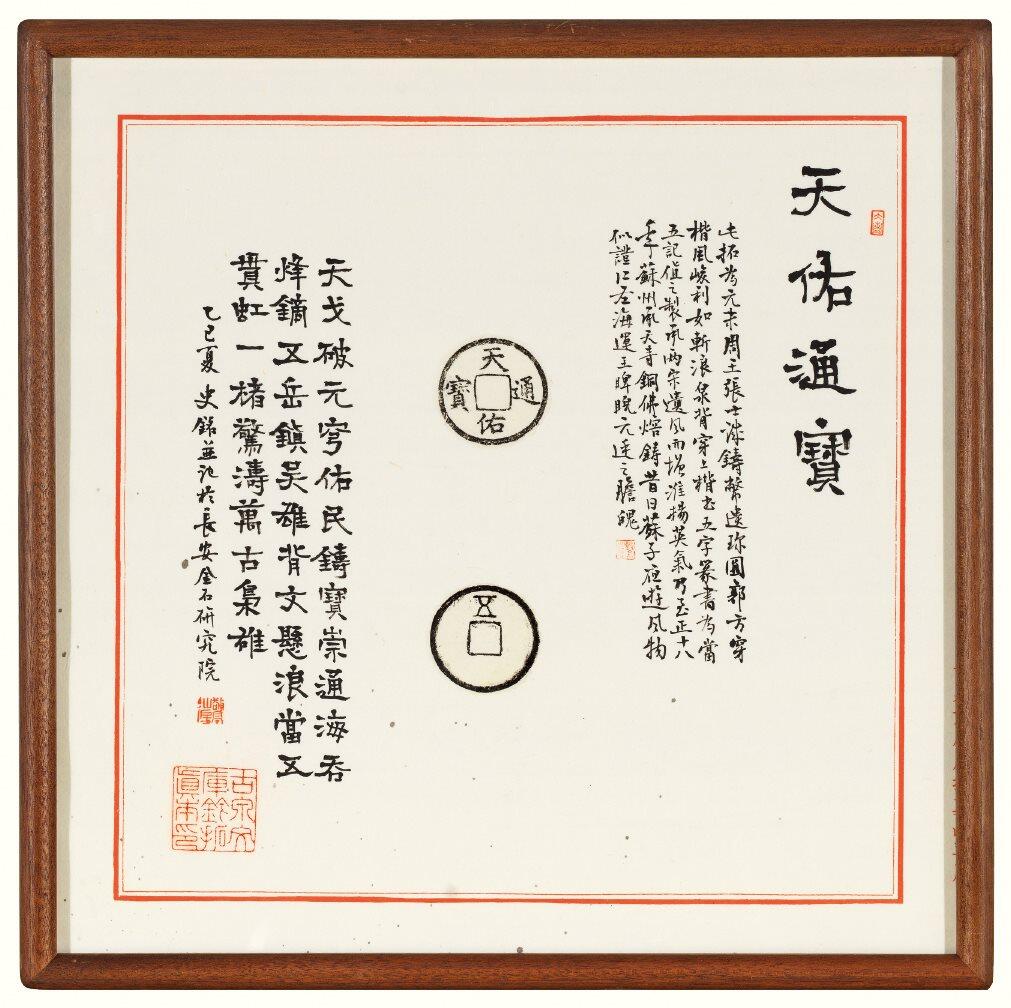 天佑通寶
此拓為元末周王張士誠鑄幣遺珍圓郭方穿
楷風峻利如斬浪泉背穿上楷書五字篆書為當
五記值之製承兩宋遺風而增淮揚英氣乃至正十八
年蘇州承天寺銅佛熔鑄昔日蘇子夜遊風物
似證仁至海運王睥睨元廷之膽魄
天佑通寶
五
天戈破元穹佑民鑄寶崇通海吞
烽鏑五岳鎮吳雄背文懸浪當五
貫虹一楮驚濤萬古梟雄
乙巳夏 史銘並記於長安金石研究院
古泉文
庫鈐拓
真本印